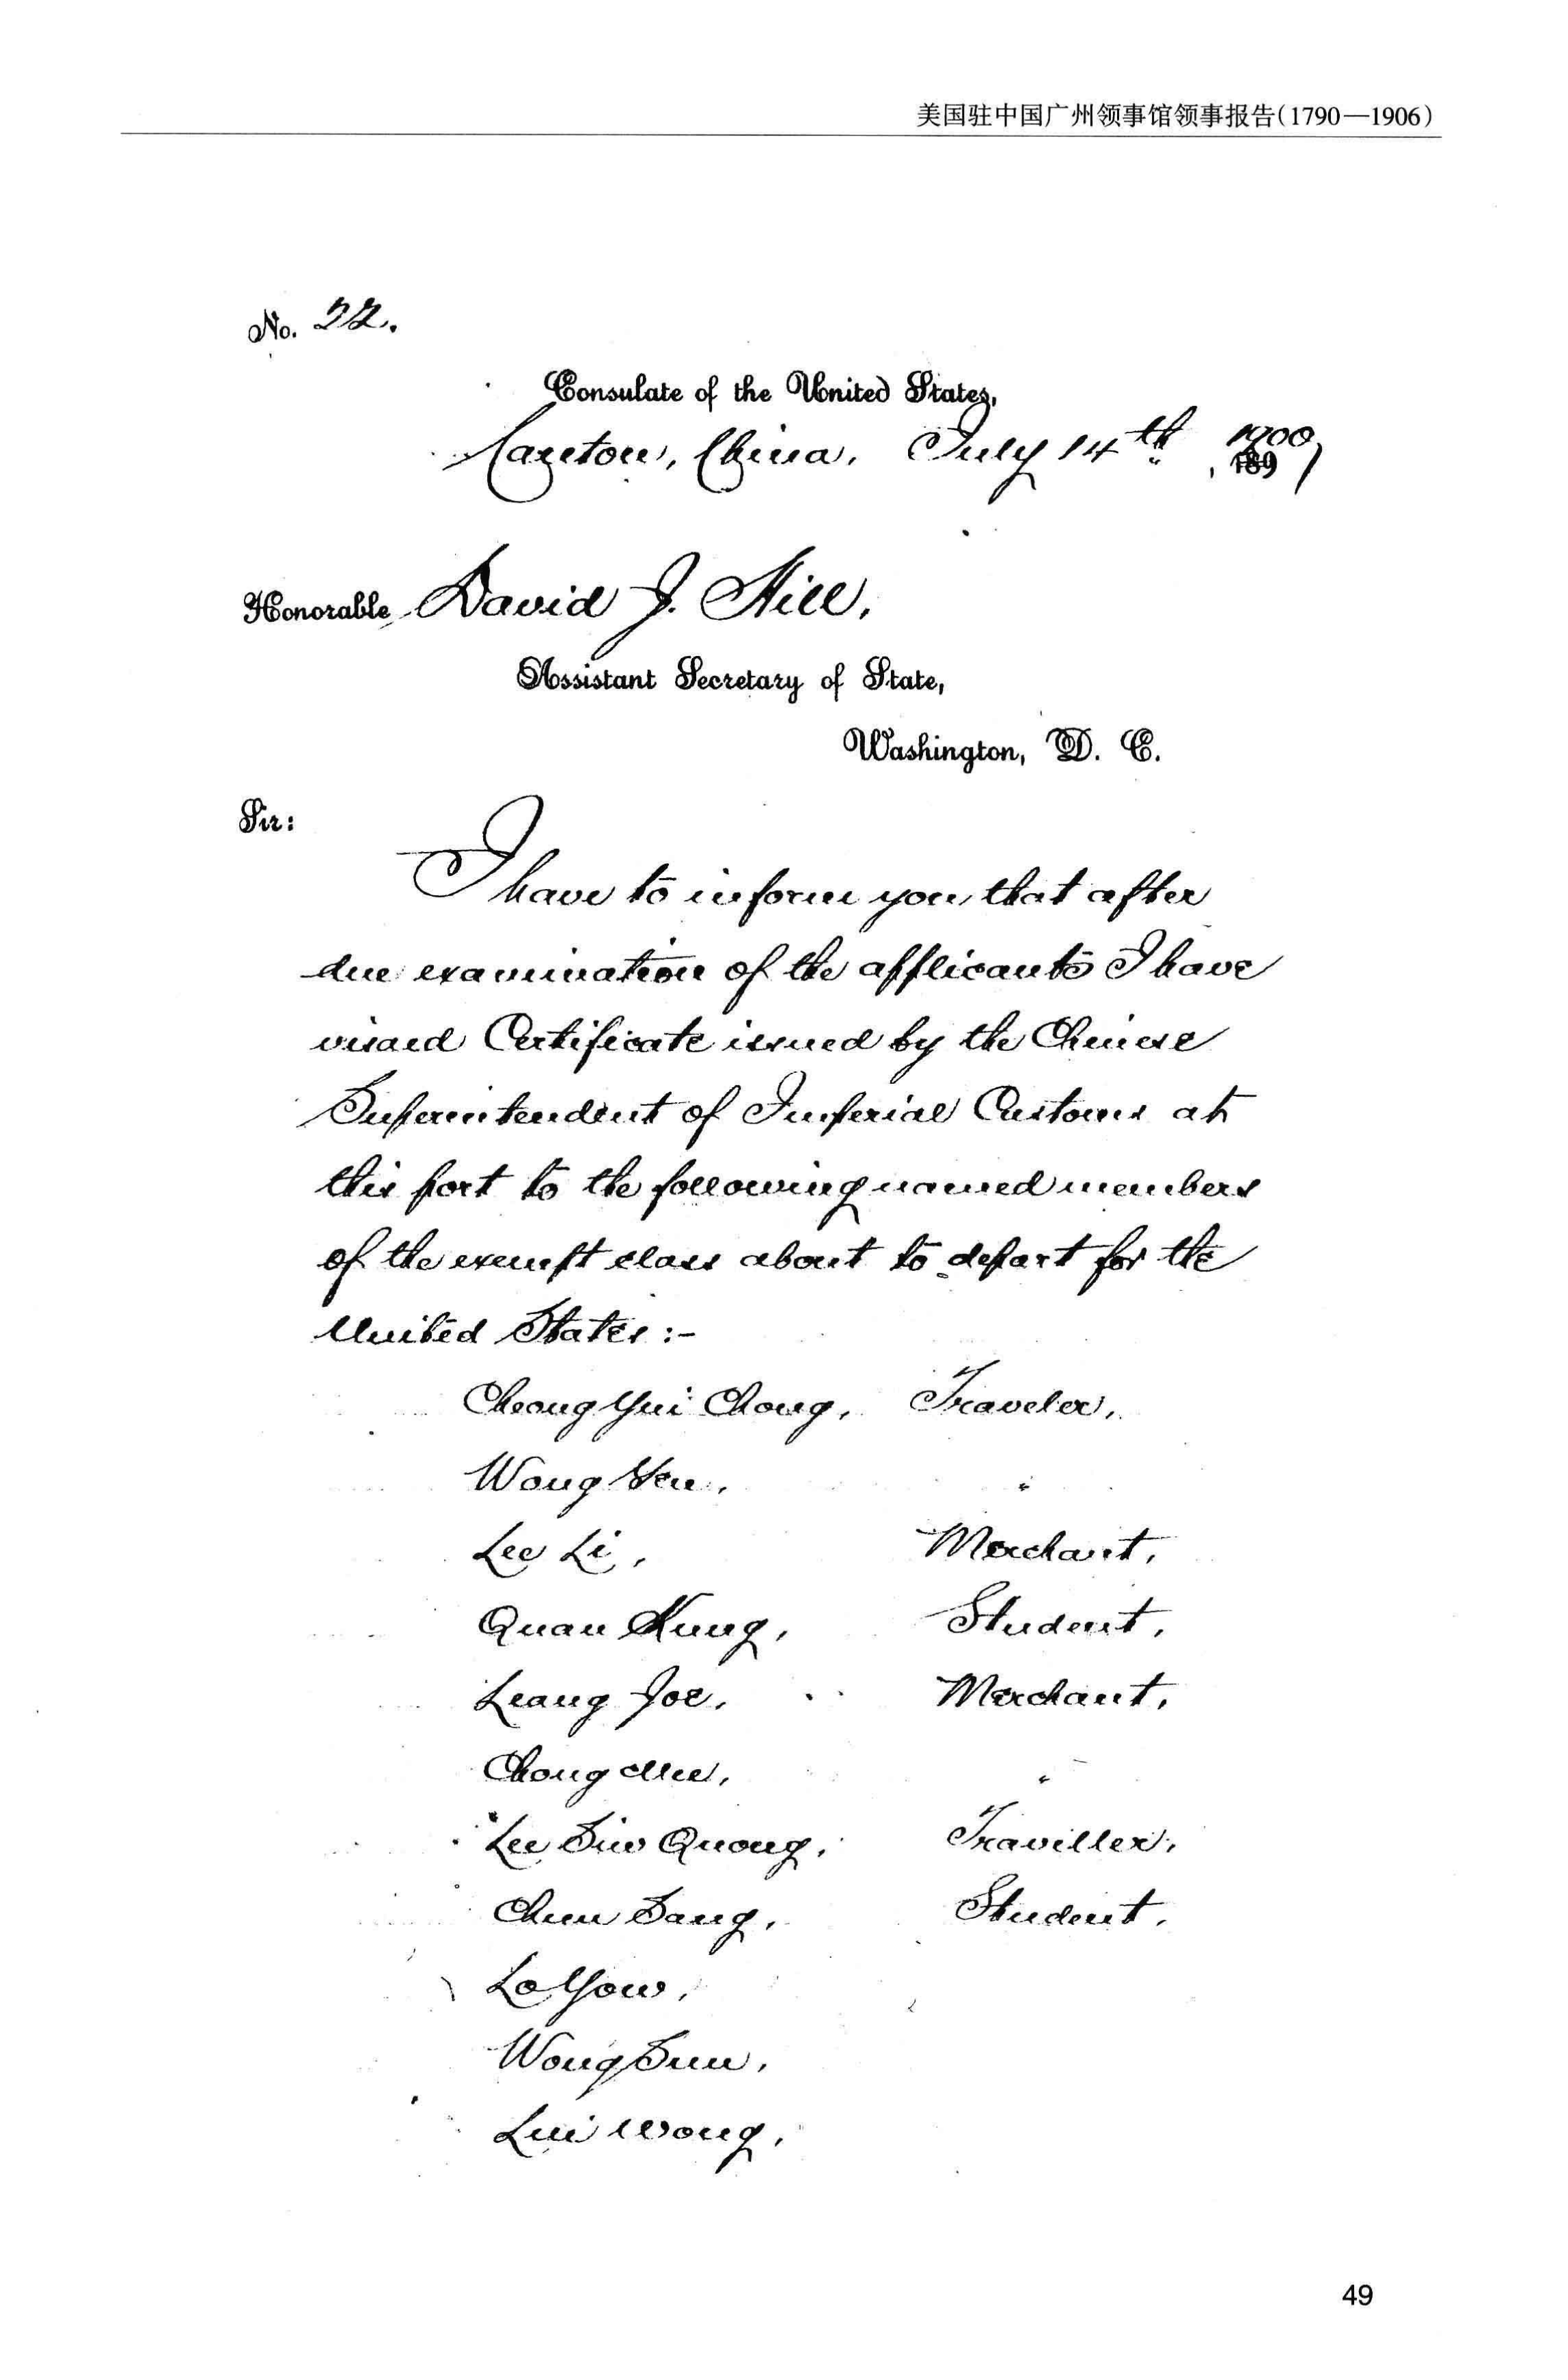 美国驻中国广州领事馆领事报告(1790—1906)
No. 22.
Consulate of the United States,
Canton, China, July 14th, 1900
189
Honorable David J. Hill,
Assistant Secretary of State,
Washington, D. C.
Sir:
I have to inform you that after
due examination of the applicants I have
visaed Certificate issued by the Chinese
Superintendent of Imperial Customs at
this port to the following named members
of the exempt class about to depart for the
United States :-
Cheong Yui Chong, Traveler,
Wong Yen, "
Lee Li, Merchant,
Quan Kung, Student,
Leang Joe, Merchant,
Chong Mee, "
Lee Siw Quong, Traviller,
Chun Sang, Student.
Lo Yow,
Wong Sun,
Lui Wong,
49